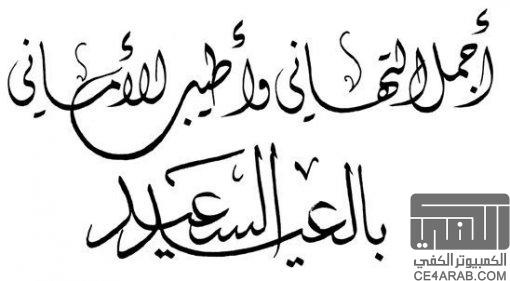 أجمل التهاني وأطيب الأماني
بالعيد السعيد
الكفي
الكمبيوتر الكفي
CE4ARAB.COM